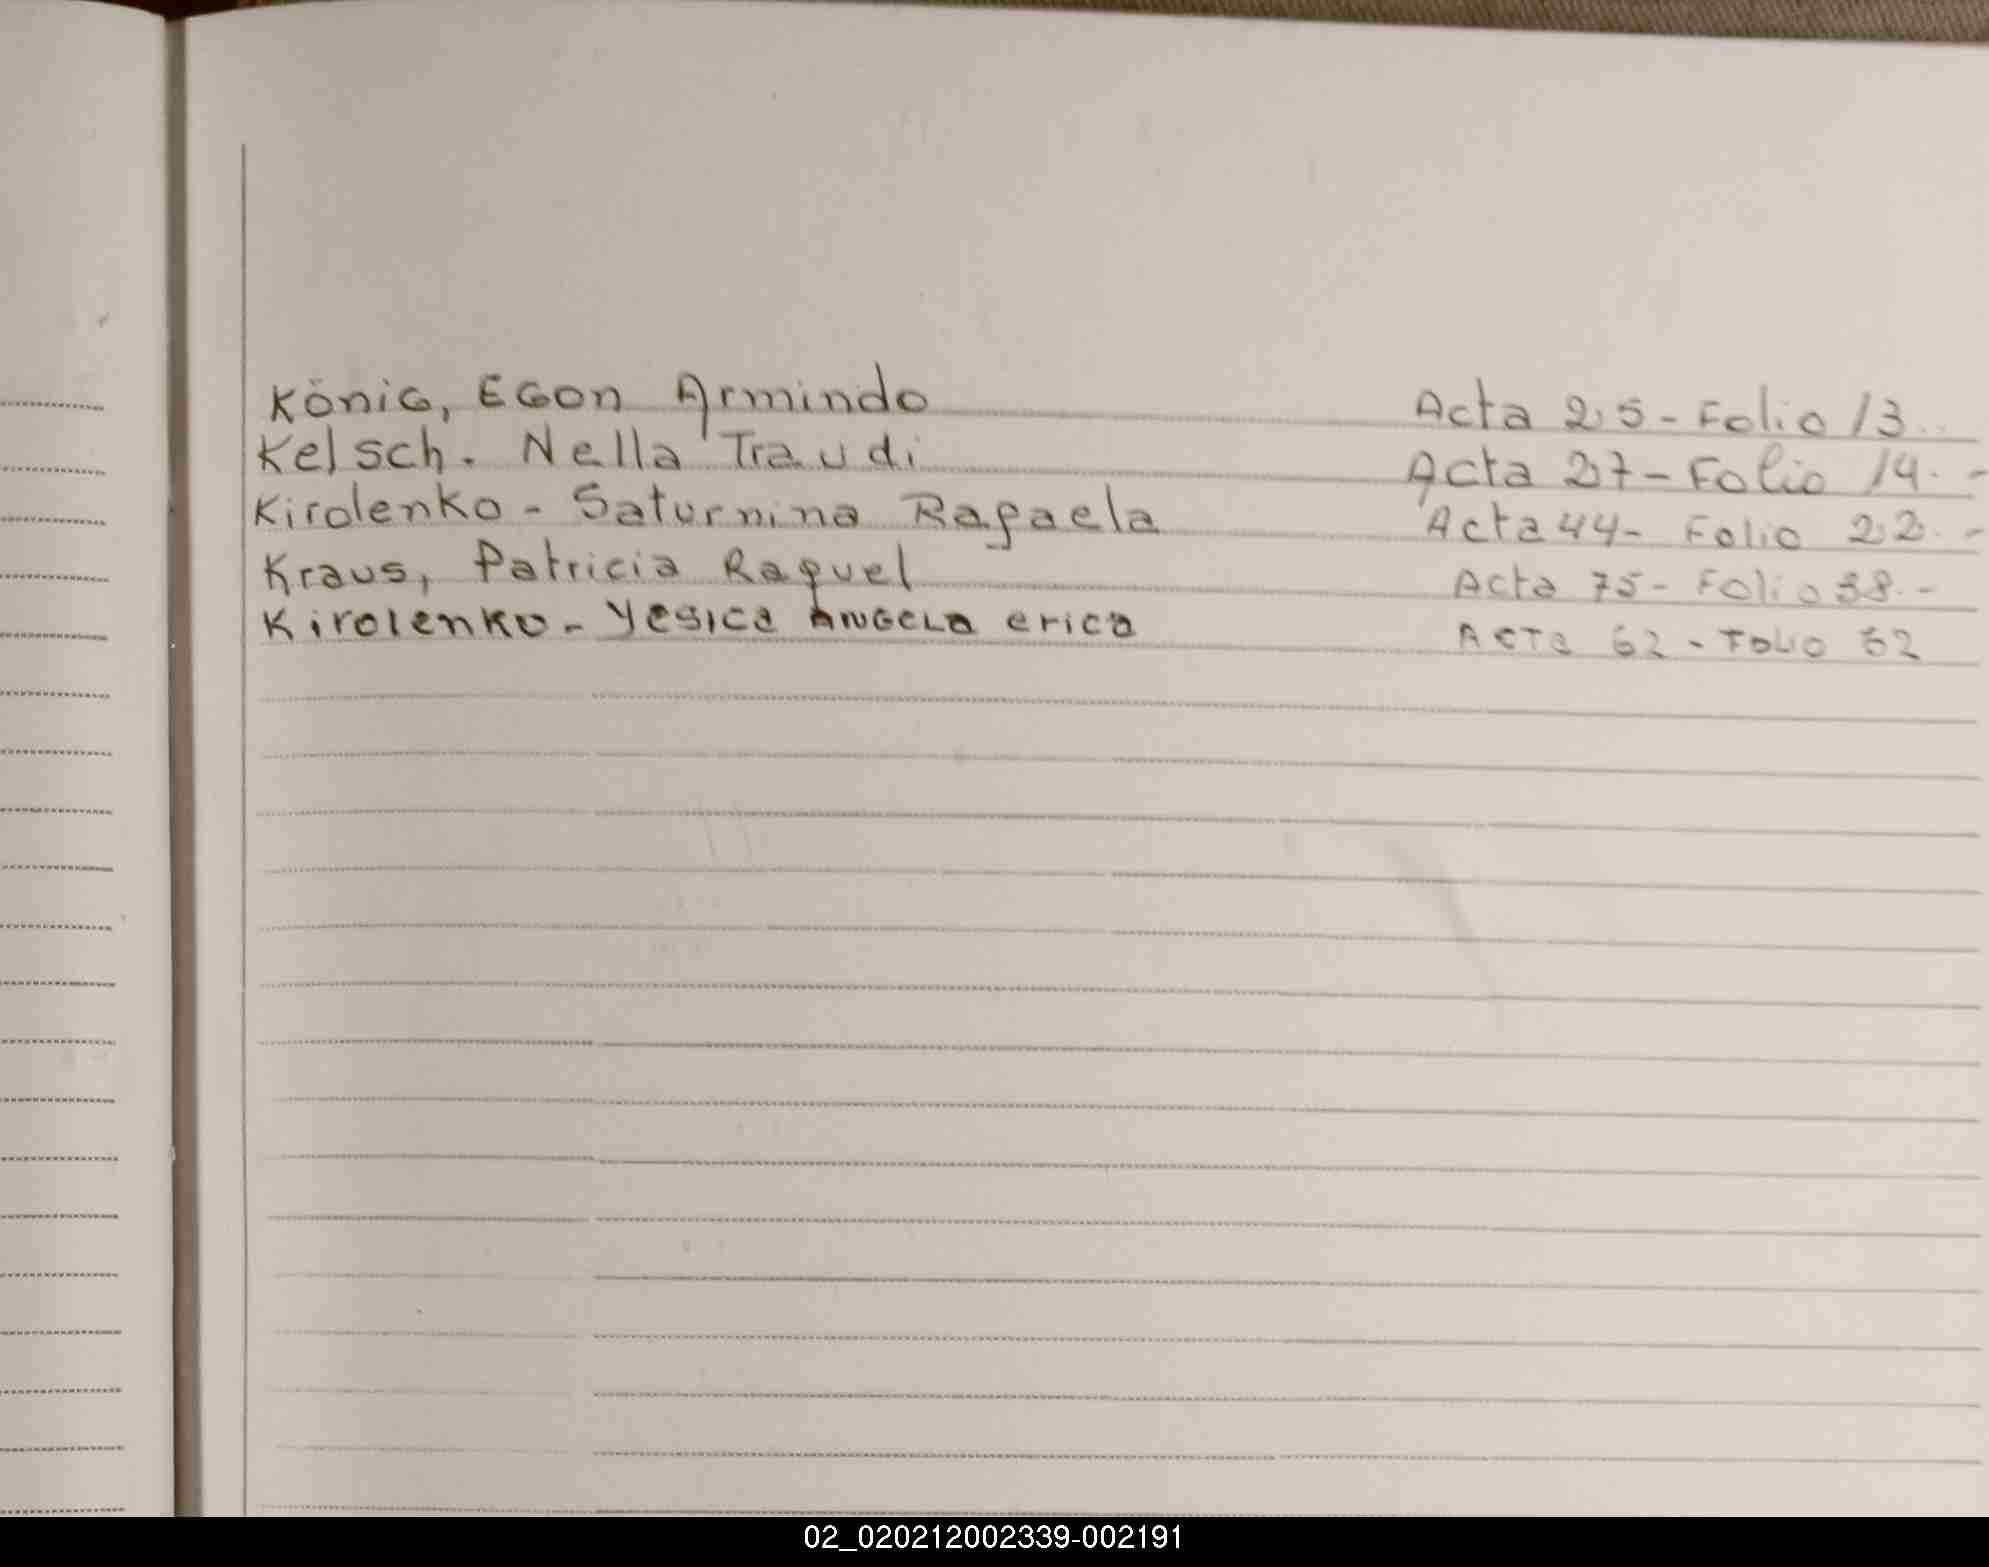 König, Egon Armindo Acta 25 - Folio 13..
Kelsch. Nella Traudi Acta 27 - Folio 14. -
Kirolenko - Saturnina Rafaela Acta 44 - Folio 22. -
Kraus, Patricia Raquel Acta 75 - Folio 38. -
Kirolenko - Yesica Angela erica Acta 62 - Folio
02_020212002339-002191